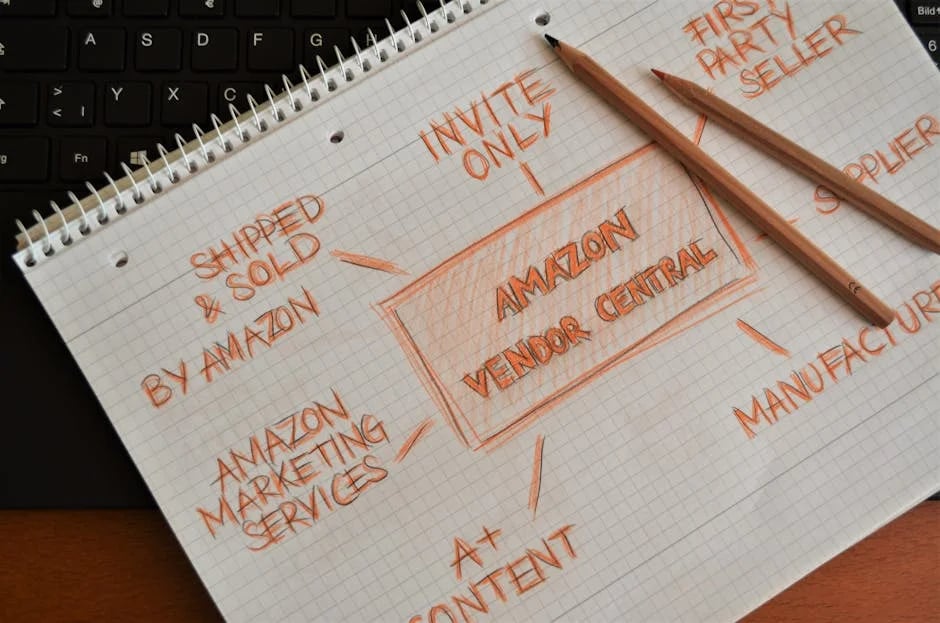 @
€
A S D F G
Bild
6
>
< |
Y X C
Fn
INVITE
ONLY
FIRST
PARTY
SELLER
SUPPLIER
SHIPPED
& SOLD
BY AMAZON
AMAZON
VENDOR CENTRAL
MANUFACTURE
AMAZON
MARKETING
SERVICES
A+
CONTENT